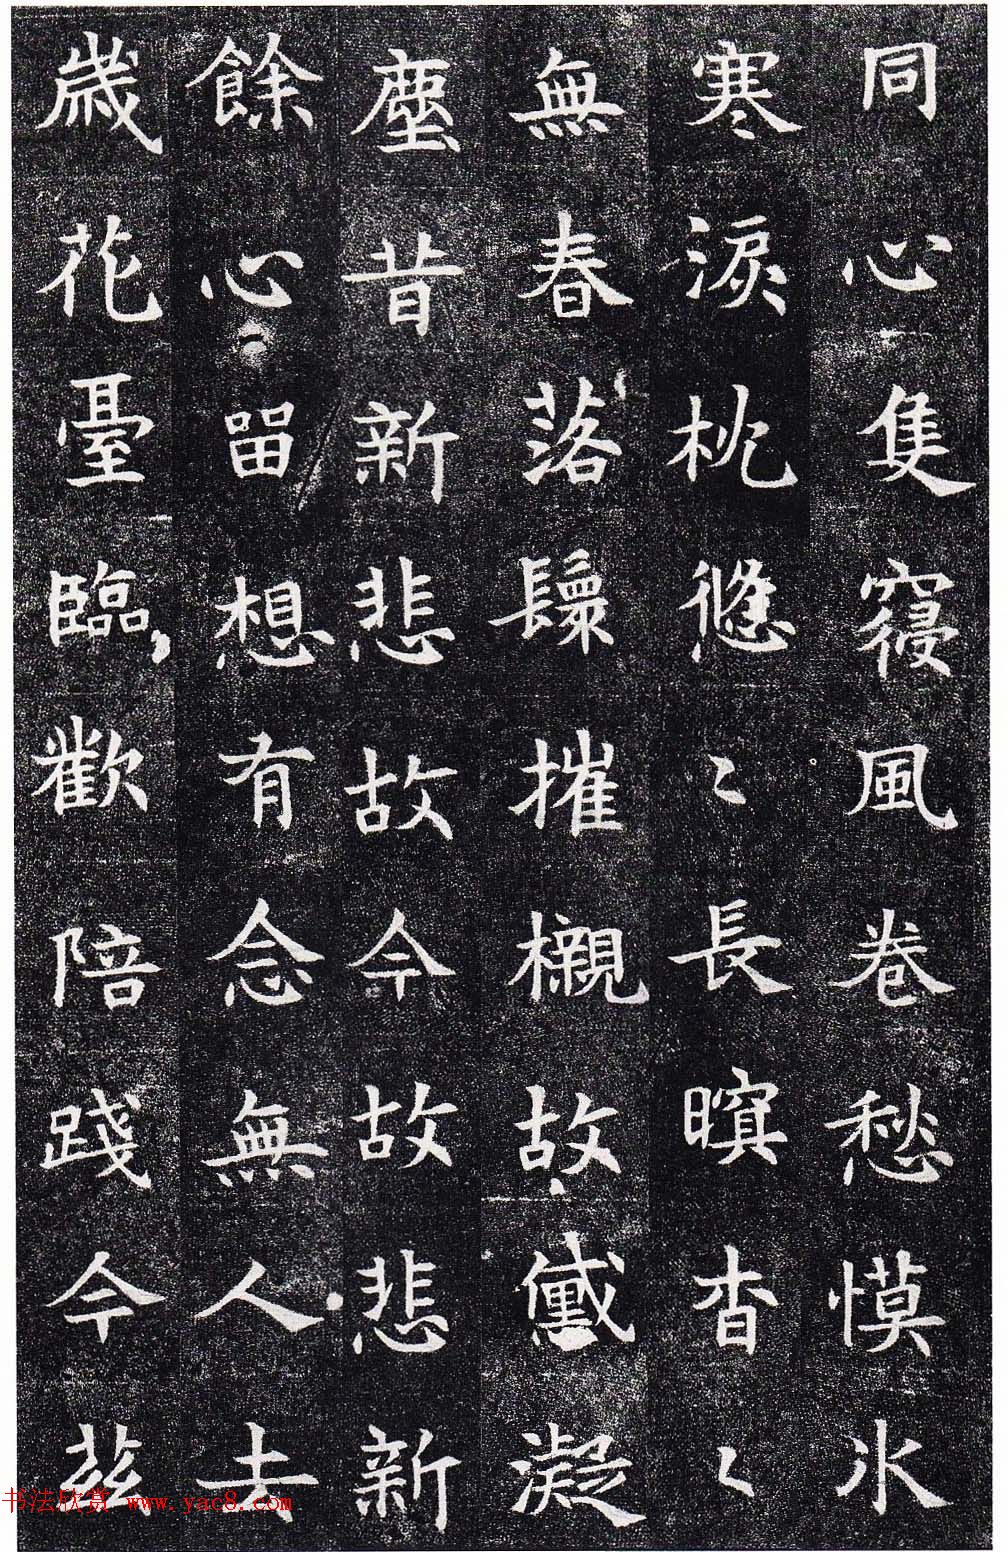 同心隻寢風卷愁慔氷
寒淚枕悠〻長暝杳〻
無春落鬟摧櫬故黛凝
塵昔新悲故今故悲新
餘心留想有念無人去
歲花臺臨歡陪踐今茲
书法欣赏 www.yac8.com